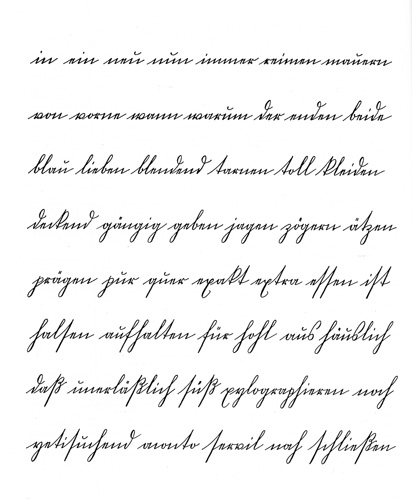 in ein neu nun immer reimen mauern
von vorne wann warum der enden beide
blau lieben blendend tarnen toll kleiden
deckend gängig geben jagen zögern ätzen
prägen pur quer exakt extra essen ist
halsen aufhalten für hohl aus häuslich
daß unerläßlich süß xylographieren noch
yetisuchend servil nah schließen